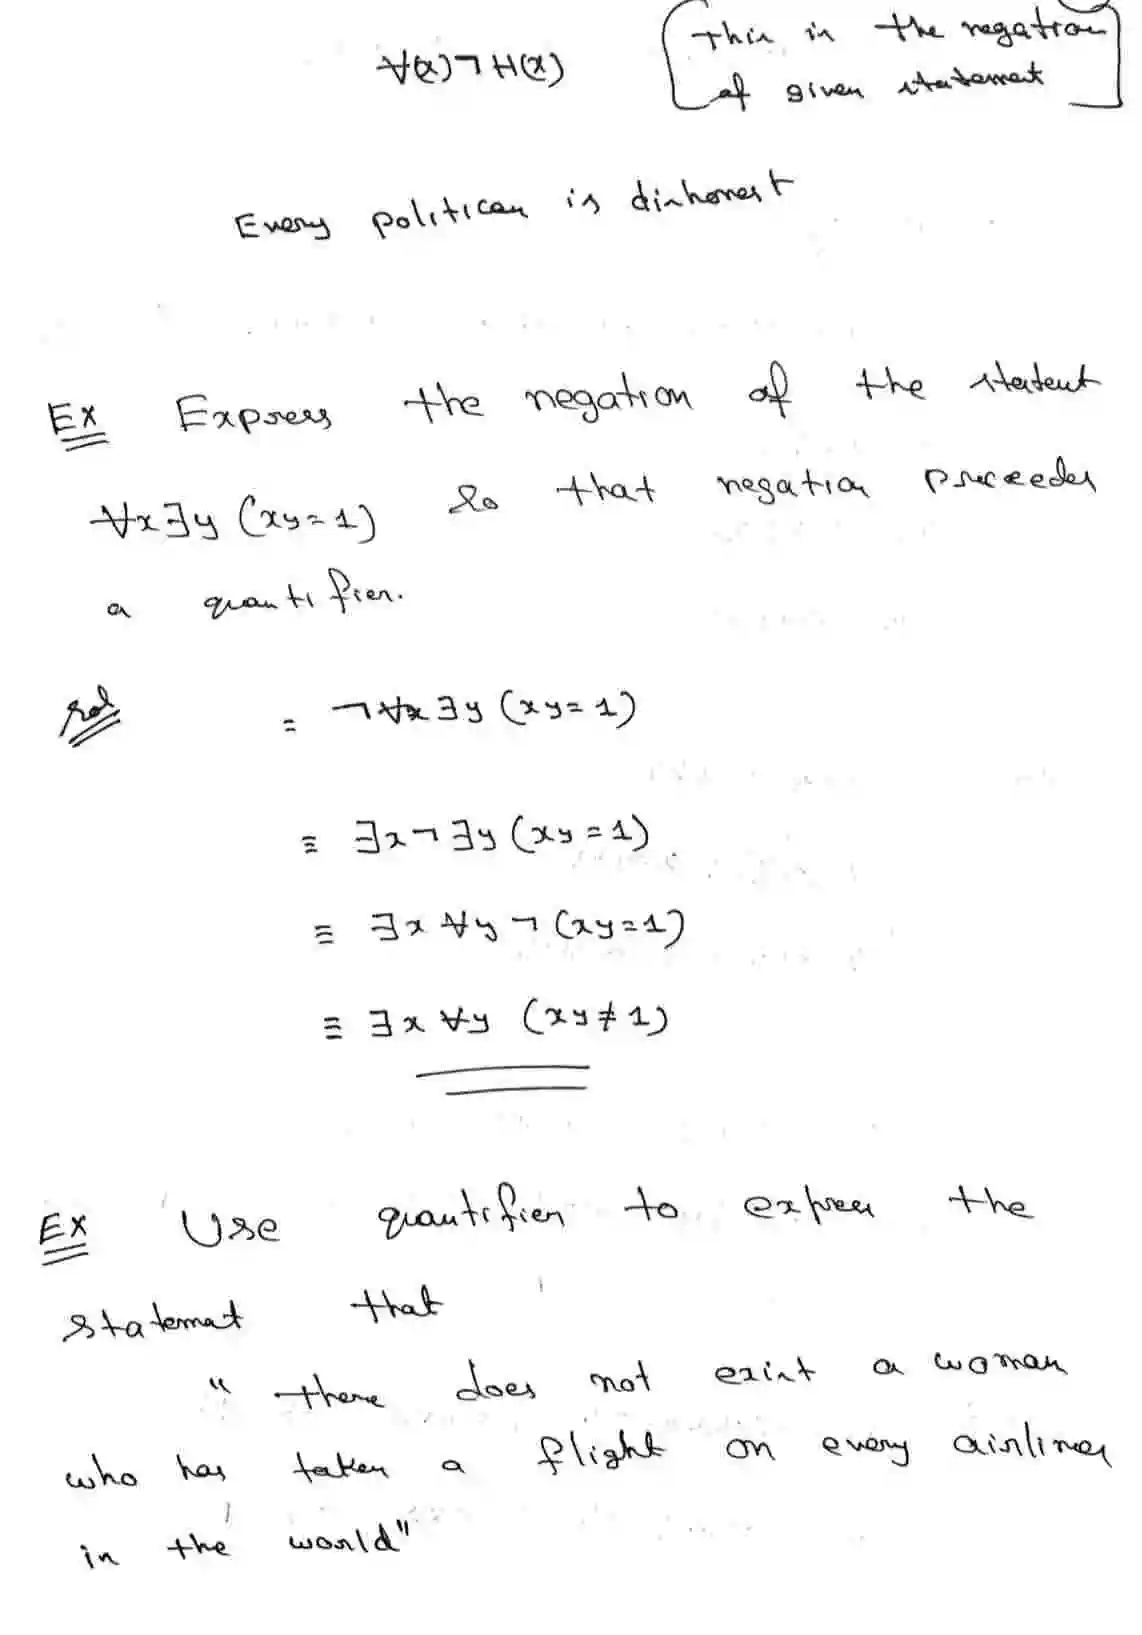 ∀(x)¬H(x)
This is the negation
of given statement
Every politican is dishonest
Ex Express the negation of the statent
∀x∃y (xy=1) so that negation preceedes
a quantifier.
sol = ¬∀x∃y (xy=1)
≡ ∃x¬∃y (xy=1)
≡ ∃x ∀y ¬(xy=1)
≡ ∃x ∀y (xy≠1)
Ex Use quantifier to express the
statemat that
" there does not exist a woman
who has taken a flight on every airlines
in the world"